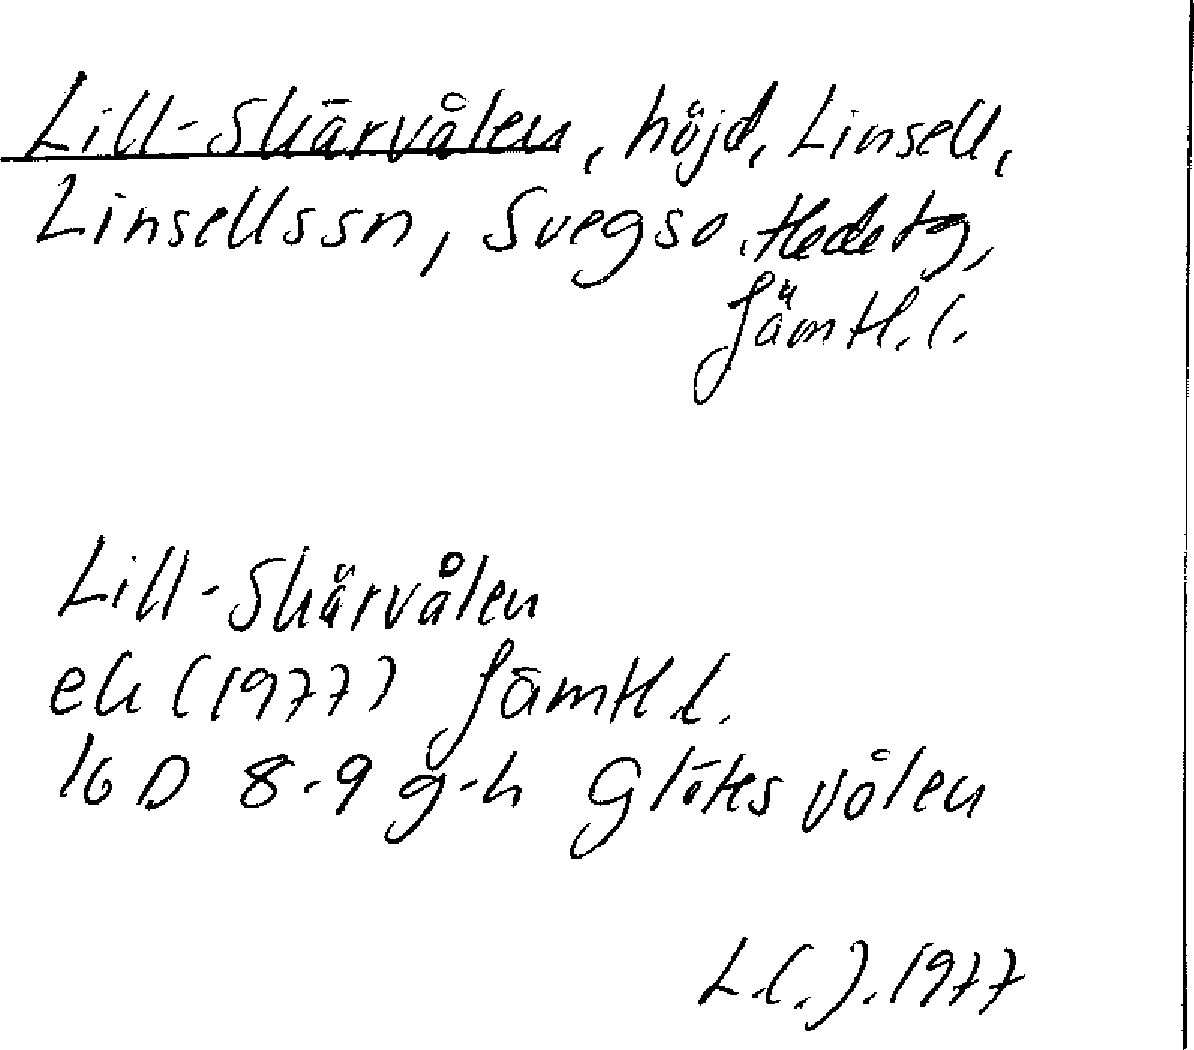 Lill-Skärvålen, höjd, Linsell,
Linsellssn, Svegs o. Hede tg,
Jämtl. l.
Lill-Skärvålen
ek (1977) Jämtl. l.
16 D 8-9 g-h Glötesvålen
L.(.).1977